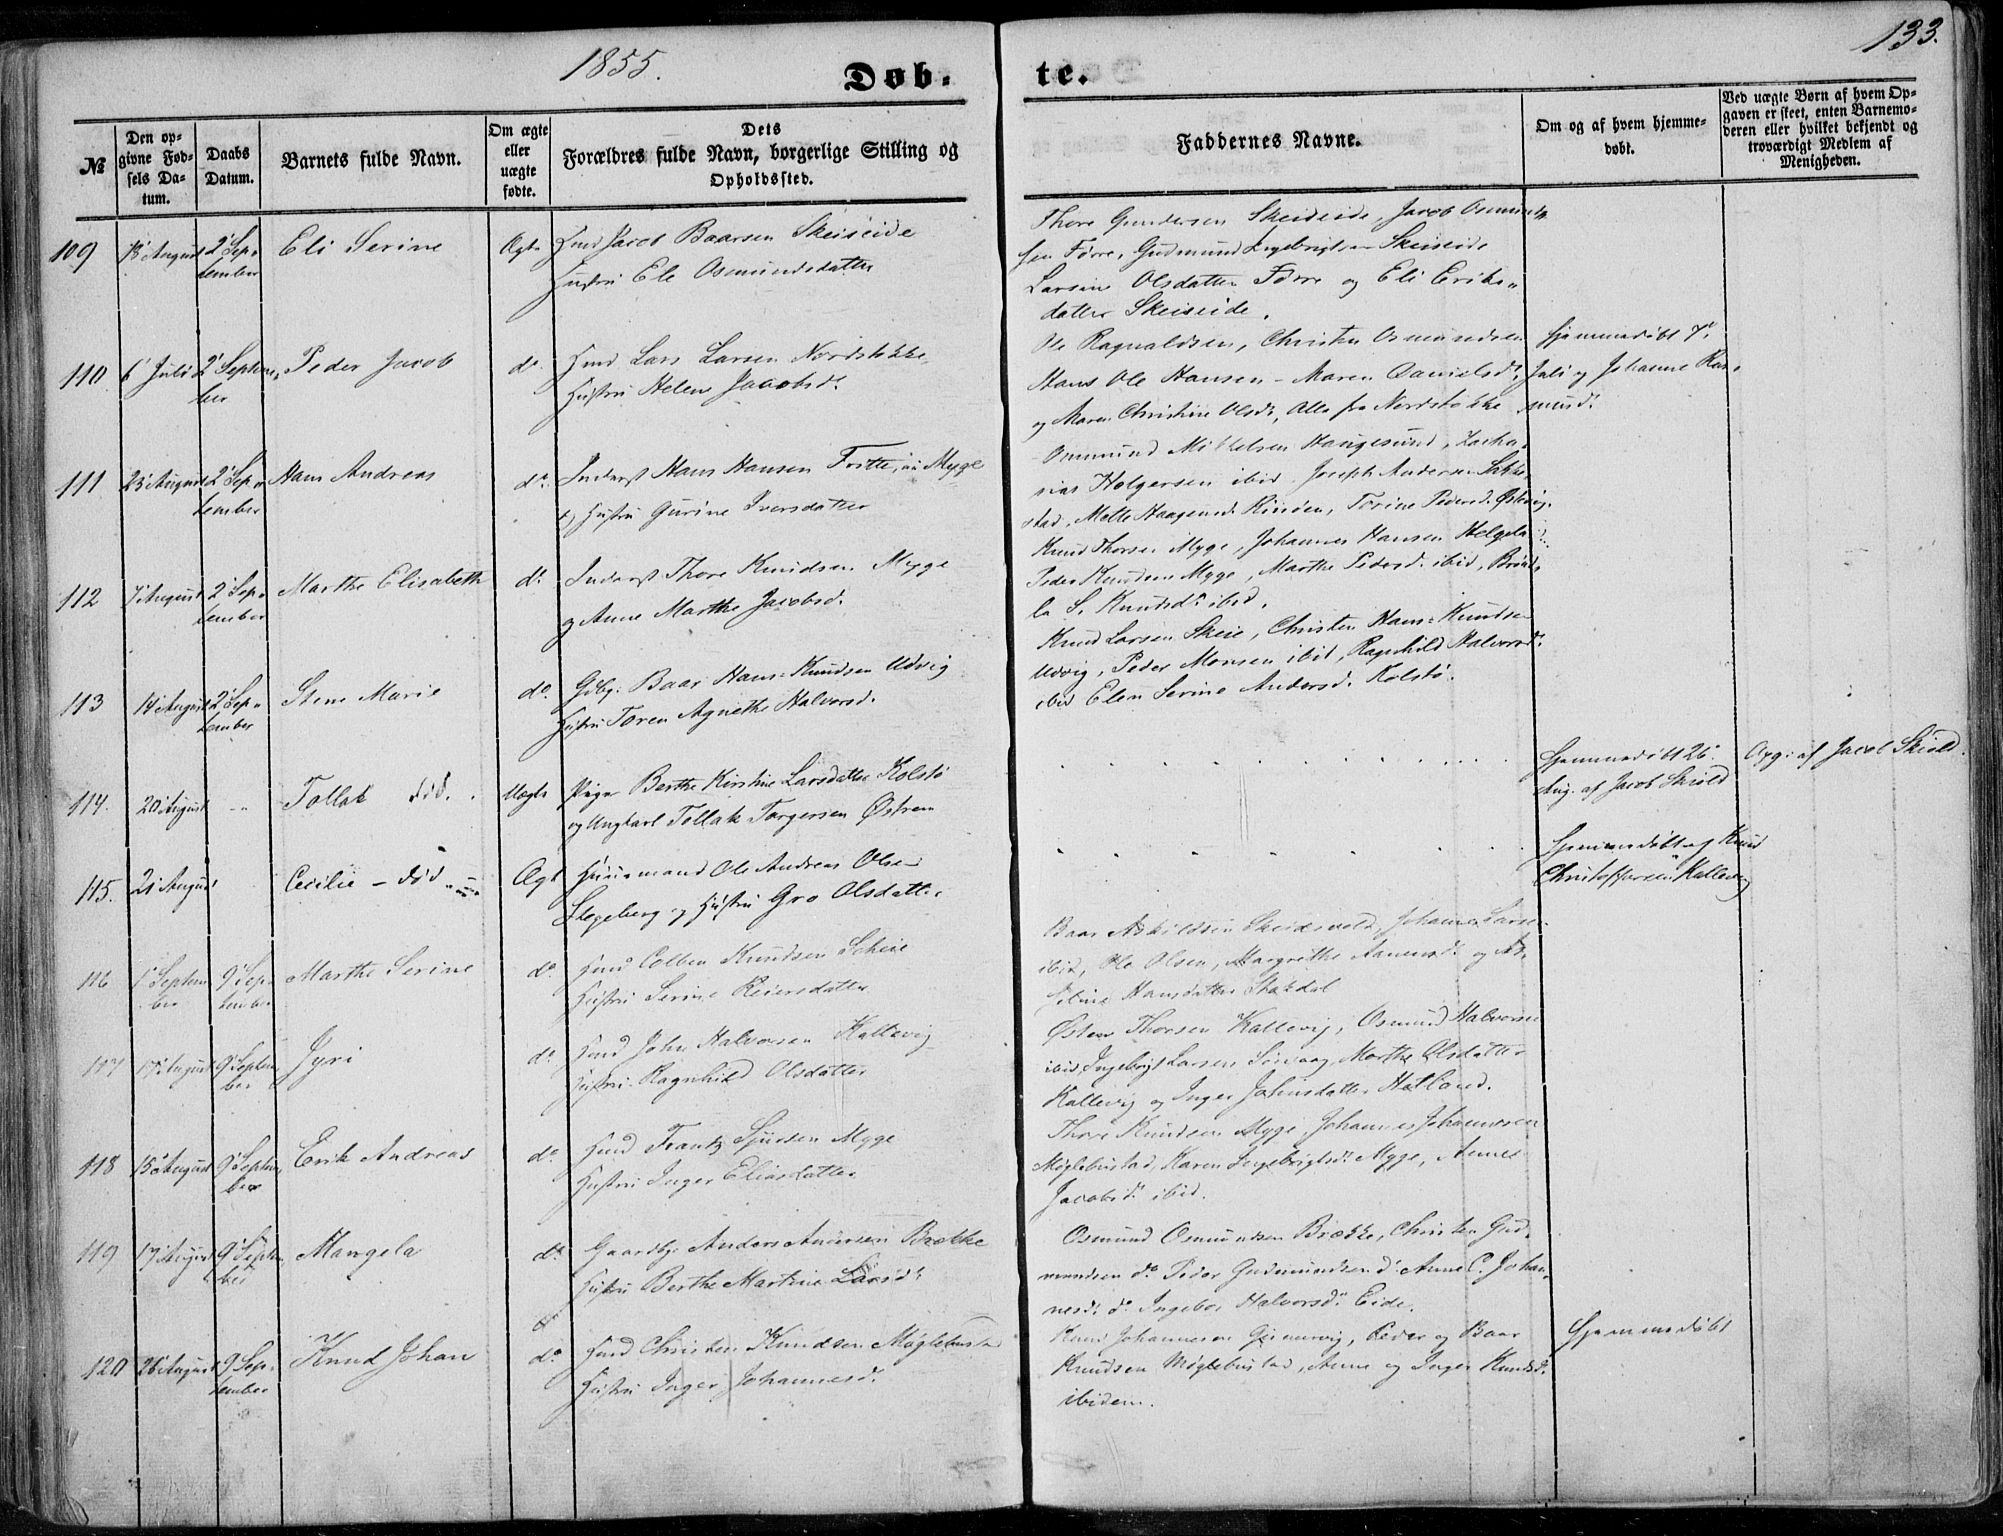 1855.
133.
Døb-
te.
№
Den op-
givne Fød-
sels Da-
tum.
Daabs
Datum.
Barnets fulde Navn.
Om ægte
eller
uægte
fødte.
Dets
Forældres fulde Navn, borgerlige Stilling og
Opholdssted.
Faddernes Navne.
Om og af hvem hjemme-
døbt.
Ved uægte Børn af hvem Op-
gaven er skeet, enten Barnemo-
deren eller hvilket bekjendt og
troværdigt Medlem af
Menigheden.
109
August
2' Sep-
tember
Eli Serine
Ægte
Jacob Baarsen Skeiseide
Hustru Ele Osmundsdatter
Thore Gundersen Skeiseide, Jacob Osmund-
sen Førre, Gudmund Ingebrigtsen Skeiseide
Olsdatter Førre og Eli Eriks-
datter Skeiseide.
110
6' Juli
2' Septem-
ber
Peder Jacob
do
Lars Larsen Nordstokke
Hustru Helene Jacobsd.
Ole Ragnaldsen, Christen Osmundsen
Hans Ole Hansen - Maren Danielsd.
og Maren Christine Olsd. Alle fra Nordstokke
Hjemmedøbt 7'
Juli af Johanne Ras-
musd.
111
23' August
2' Sep-
tember
Hans Andreas
do
Inderst Hans Hansen Myge
og Hustru Gurine Iversdatter
Ommund Mikkelsen Haugesund, Zacha-
rias Holgersen ibid. Joseph Andersen
stad, Mette Haagensd. Torine Pedersd.
112
7' August
2' Sep-
tember
Marthe Elisabeth
do
Inderst Thore Knudsen Myge
og Anne Marthe Jacobsd.
Knud Thorsen Myge, Johannes Hansen
Peder Knudsen Myge, Marthe Pedersd. ibid,
la S. Knudsd. ibid.
113
14' August
2' Sep-
tember
Marie
do
Gdbr. Baar Hans Knudsen Udvig
Hustru Toren Agnethe Halvorsd.
Knud Larsen Skeie, Christen Hans Knudsen
Udvig, Peder Monsen ibid, Ragnhild Halvorsd.
ibid Elen Serine Andersd. Kolstø.
114.
20' August
"
Tollak død.
Uægte
Pige Berthe Kirstine Larsdatter Kolstø
og Ungkarl Tollak Torgersen Østrem
Hjemmedøbt 26'
Aug. af Jacob Skiold
Opg. af Jacob Skiold.
115.
21 August
Cecilie - død
Ægte
Huusmand Ole Andreas Olsen
og Hustru Gro Olsdatter
Hjemmedøbt af Knud
Christophersen Kallevig
116
1' Septem-
ber
9' Sep-
tember
Marthe Serine
do
Colben Knudsen Scheie
Hustru Serine Reiersdatter
Baar Askildsen Skeidsvold, Johannes Larsen
ibid, Ole Olsen, Margrethe og
Hansdatter Stakdal
117
17' August
9' Septem-
ber
Gyri
do
John Halvorsen Kallevig
Hustru Ragnhild Olsdatter
Østen Thorsen Kallevig, Osmund Halvorsen
ibid, Ingebrigt Larsen Marthe Olsdatter
Kallevig og Inger Johnsdatter Hetland.
118
15' August
9' Septem-
ber
Erik Andreas
do
Frantz Myge
Hustru Inger Eliasdatter
Thore Knudsen Myge, Johannes Johannesen
Møglebustad, Karen Ingebrigtsd. Myge, Anne
Jacobsd. ibid.
119
17' August
9' Septem-
ber
Mangela
do
Gaardbr. Anders Andersen Brekke
Hustru Berthe Martine Larsd.
Osmund Osmundsen Brekke, Christen Gud-
mundsen do Peder Gudmundsen do Anne C. Johan-
nesd. do Ingebor Halvorsd. Eide.
120
26' August
9' Sep-
tember
Knud Johan
do
Christen Knudsen Møglebustad
Hustru Inger Johannesd.
Knud Johannesen Peder og Baar
Knudsen Møglebustad, Anne og Inger Knudsd.
ibidem.
Hjemmedøbt